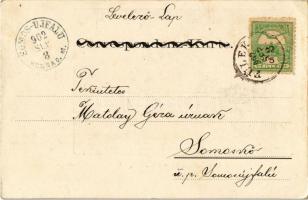 Levelező-Lap
SOMOS-UJFALU
902
8
Tekintetes
Matolay Géza úrnak
Somoskő
u. p. Somosújfalú